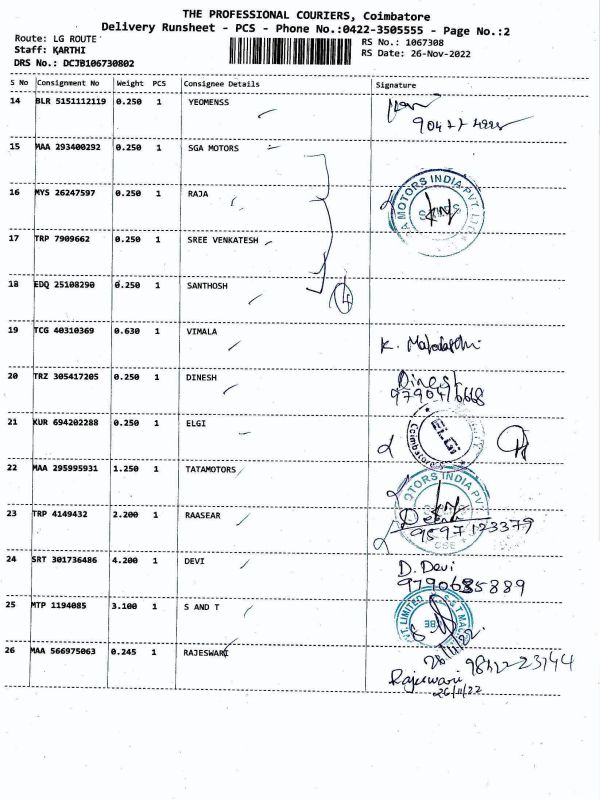 THE PROFESSIONAL COURIERS, Coimbatore
Delivery Runsheet - PCS - Phone No.:0422-3505555 - Page No.:2
Route: LG ROUTE
Staff: KARTHI
DRS No.: DCJB106730802
RS No.: 1067308
RS Date: 26-Nov-2022
S No Consignment No Weight PCS Consignee Details Signature
14 BLR 5151112119 0.250 1 YEOMENSS
15 MAA 293400292 0.250 1 SGA MOTORS
MOTORS INDIA PVT. LTD
16 MYS 26247597 0.250 1 RAJA
17 TRP 7909662 0.250 1 SREE VENKATESH
18 EDQ 25108290 0.250 1 SANTHOSH
19 TCG 40310369 0.630 1 VIMALA
20 TRZ 305417205 0.250 1 DINESH Dinesh
9790416668
21 KUR 694202288 0.250 1 ELGI
ELGi
Coimbatore
22 MAA 295995931 1.250 1 TATAMOTORS
MOTORS INDIA PV
23 TRP 4149432 2.200 1 RAASEAR
9597123379
24 SRT 301736486 4.200 1 DEVI D. Devi
9790685889
25 MTP 1194085 3.100 1 S AND T
LIMITED
26/11/22
26 MAA 566975063 0.245 1 RAJESWARI
Rajeswari
26/11/22